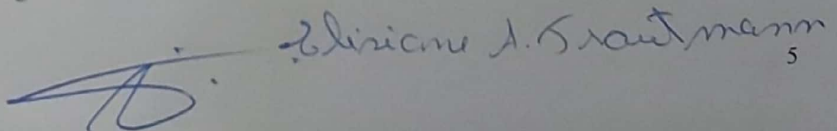 Elisiane A. Trautmann
5